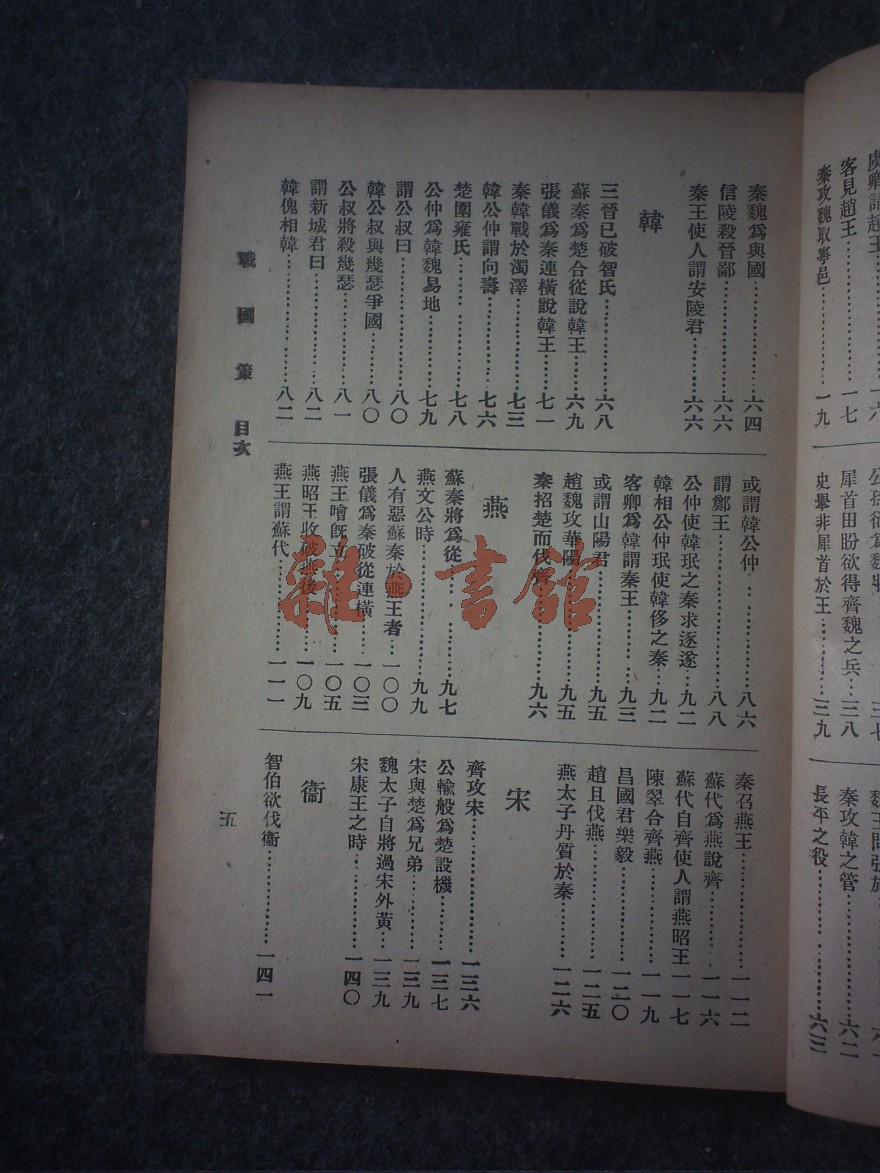 客見趙王⋯⋯一七
秦攻魏取寧邑⋯⋯一九
犀首田盼欲得齊魏之兵⋯三八
史舉非犀首於王⋯⋯三九
秦攻韓之管⋯⋯六二
長平之役⋯⋯六三
秦魏爲與國⋯⋯六四
信陵殺晉鄙⋯⋯六六
秦王使人謂安陵君⋯⋯六六
韓
三晉已破智氏⋯⋯六八
蘇秦爲楚合從說韓王⋯⋯六九
張儀爲秦連橫說韓王⋯⋯七一
秦韓戰於濁澤⋯⋯七三
韓公仲謂向壽⋯⋯七六
楚圍雍氏⋯⋯七八
公仲爲韓魏易地⋯⋯七九
謂公叔曰⋯⋯八〇
韓公叔與幾瑟爭國⋯⋯八〇
公叔將殺幾瑟⋯⋯八一
謂新城君曰⋯⋯八二
韓傀相韓⋯⋯八二
或謂韓公仲⋯⋯八六
謂鄭王⋯⋯八八
公仲使韓珉之秦求逐遂⋯九二
韓相公仲珉使韓侈之秦⋯九二
客卿爲韓謂秦王⋯⋯九三
或謂山陽君⋯⋯九五
趙魏攻華陽⋯⋯九五
秦招楚而伐齊⋯⋯九六
燕
蘇秦將爲從⋯⋯九七
燕文公時⋯⋯九九
人有惡蘇秦於燕王者⋯一〇〇
張儀爲秦破從連橫⋯⋯一〇三
燕王噲旣立⋯⋯一〇五
燕昭王收破燕後⋯⋯一〇九
燕王謂蘇代⋯⋯一一一
秦召燕王⋯⋯一一二
蘇代爲燕說齊⋯⋯一一六
蘇代自齊使人謂燕昭王一一七
陳翠合齊燕⋯⋯一一九
昌國君樂毅⋯⋯一二〇
趙且伐燕⋯⋯一二五
燕太子丹質於秦⋯⋯一二六
宋
齊攻宋⋯⋯一三六
公輸般爲楚設機⋯⋯一三七
宋與楚爲兄弟⋯⋯一三九
魏太子自將過宋外黃⋯一三九
宋康王之時⋯⋯一四〇
衞
智伯欲伐衞⋯⋯一四一
戰國策 目次
五
雜·書館